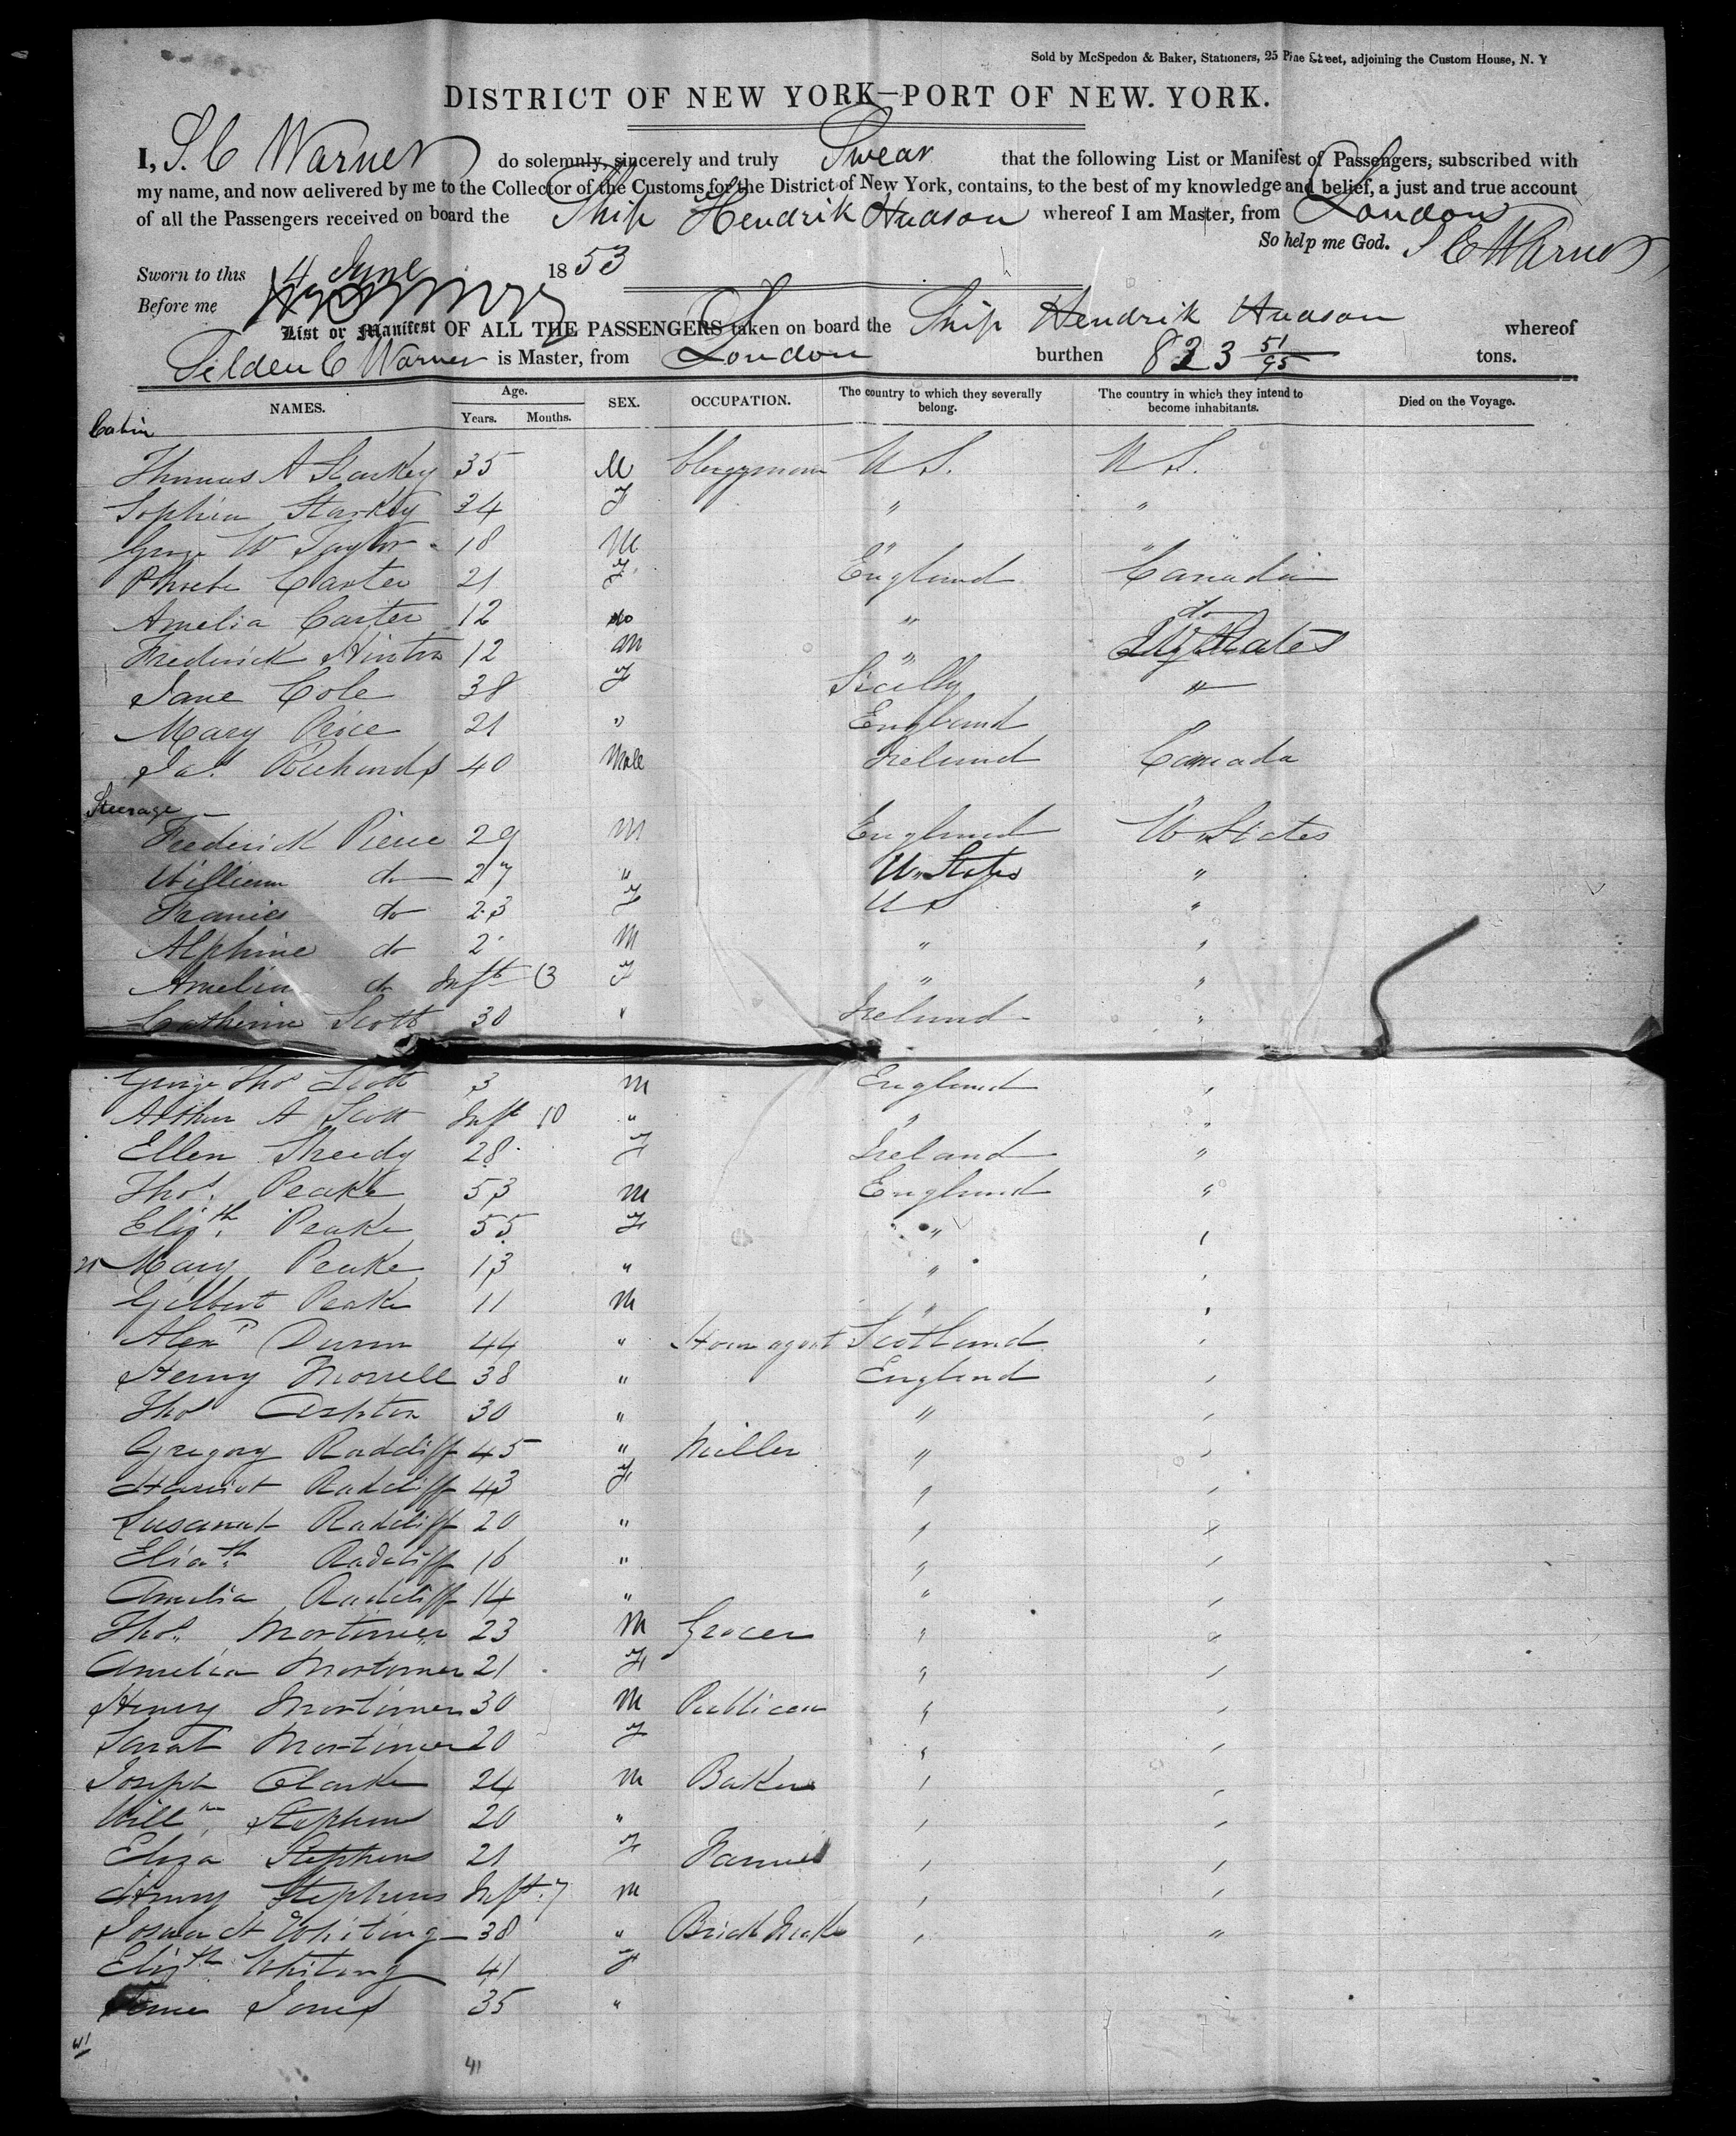 Sold by McSpedon & Baker, Stationers, 25 Pine Street, adjoining the Custom House, N. Y
DISTRICT OF NEW YORK—PORT OF NEW. YORK.
I, S. C Warner do solemnly, sincerely and truly Swear that the following List or Manifest of Passengers, subscribed with
my name, and now delivered by me to the Collector of the Customs for the District of New York, contains, to the best of my knowledge and belief, a just and true account
of all the Passengers received on board the Ship Hendrik Hudson whereof I am Master, from London
So help me God. S C Warner
Sworn to this 4 June 1853
Before me
List or Manifest OF ALL THE PASSENGERS taken on board the Ship Hendrik Hudson whereof
Tilden C Warner is Master, from London burthen 823 51/95 tons.
NAMES. Age. Years. Months. SEX. OCCUPATION. The country to which they severally belong. The country in which they intend to become inhabitants. Died on the Voyage.
Cabin
Thomas A Starkey 35 M Clergyman U S. U S.
Sophia Starkey 34 F " "
George W Taylor 18 M " "
Phoebe Carter 21 F England Canada
Amelia Carter 12 do " do
Frederick Hinton 12 M " States
Jane Cole 38 F Scilly "
Mary Price 21 " England "
Jas. Richards 40 Male Ireland Canada
Steerage
Frederick Pierce 29 M England U States
William do 27 " U. States "
Frances do 23 F U S "
Alphine do 2 M " "
Amelia do Inft 3 F " "
Catherine Scott 30 " Ireland "
George Thos Scott 3 M England "
Arthur A Scott Inft 10 " " "
Ellen Sheedy 28 F Ireland "
Thos. Peake 53 M England "
Elizth. Peake 55 F " "
21 Mary Peake 13 " " "
Gilbert Peake 11 M " "
Alexr Dunn 44 " agent Scotland "
Henry Morrell 38 " England "
Thos Ashton 30 " " "
Gregory Radcliff 45 " Miller " "
Harriot Radcliff 43 F " "
Susanah Radcliff 20 " " "
Elizath. Radcliff 16 " " "
Amelia Radcliff 14 " " "
Thos. Mortimer 23 M Grocer " "
Amelia Mortimer 21 F " "
Henry Mortimer 30 M Publican " "
Sarah Mortimer 20 F " "
Joseph Clarke 24 M Baker " "
Willm. Stephens 20 " " "
Eliza Stephens 21 F Farmer " "
Henry Stephens Inft. 7 M " "
Whiting 38 " Brick Make " "
Elizth Whiting 41 F
Jones 35 "
41
41